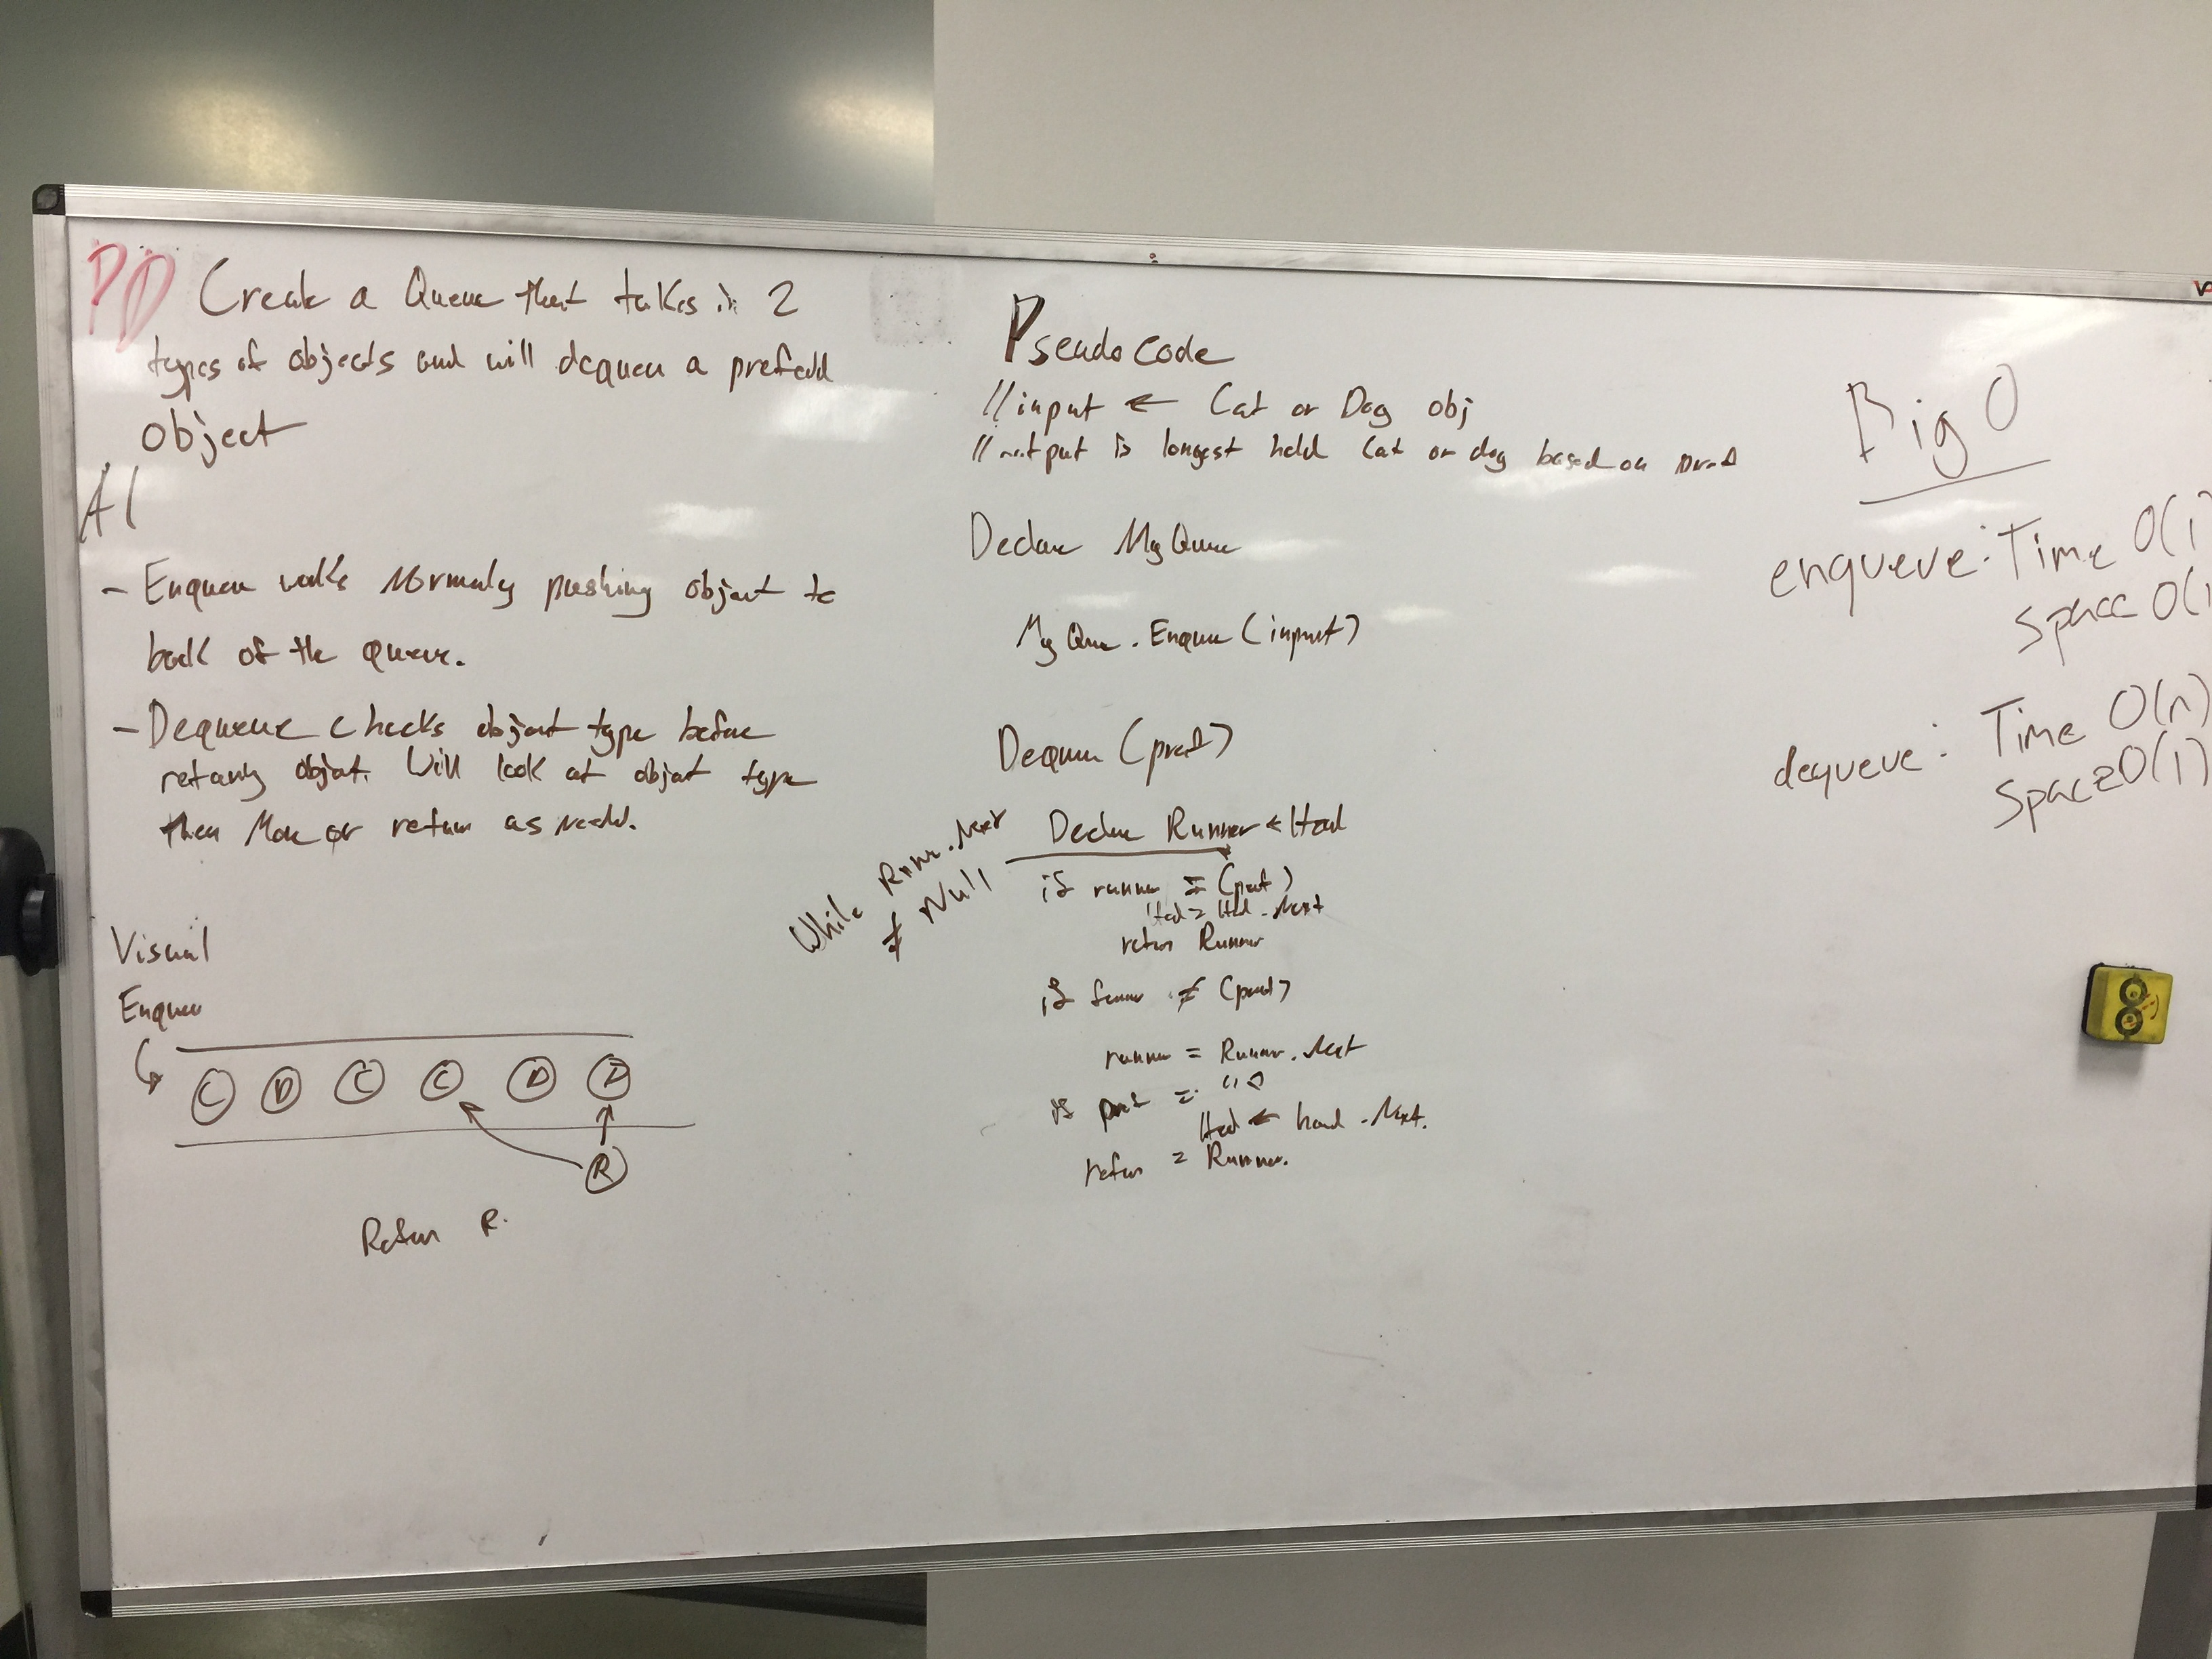 PD Create a Queue that takes in 2
types of objects and will dequeu a prefedd
object
Al
- Enqueu works Normaly pushing object to
back of the queue.
- Dequeue checks object type before
object. Will look at object type
then Move or return as need.
Visual
Enqueu
C D C C D D
R
Return R.
Pseudo code
//input ← Cat or Dog obj
//output is longest held Cat or dog based on pref
Declare MyQueue
MyQue.Enque(input)
Dequeu (pref)
While Runner.Next
≠ Null
Declare Runner ← Head
if runner = (pref)
Head = Head.Next
return Runner
if runner ≠ (pref)
runner = Runner.Next
if pref =
Head ← head.Next.
return = Runner.
Big O
enqueue: Time O(1
Space O(1
dequeue: Time O(n)
Space O(1)